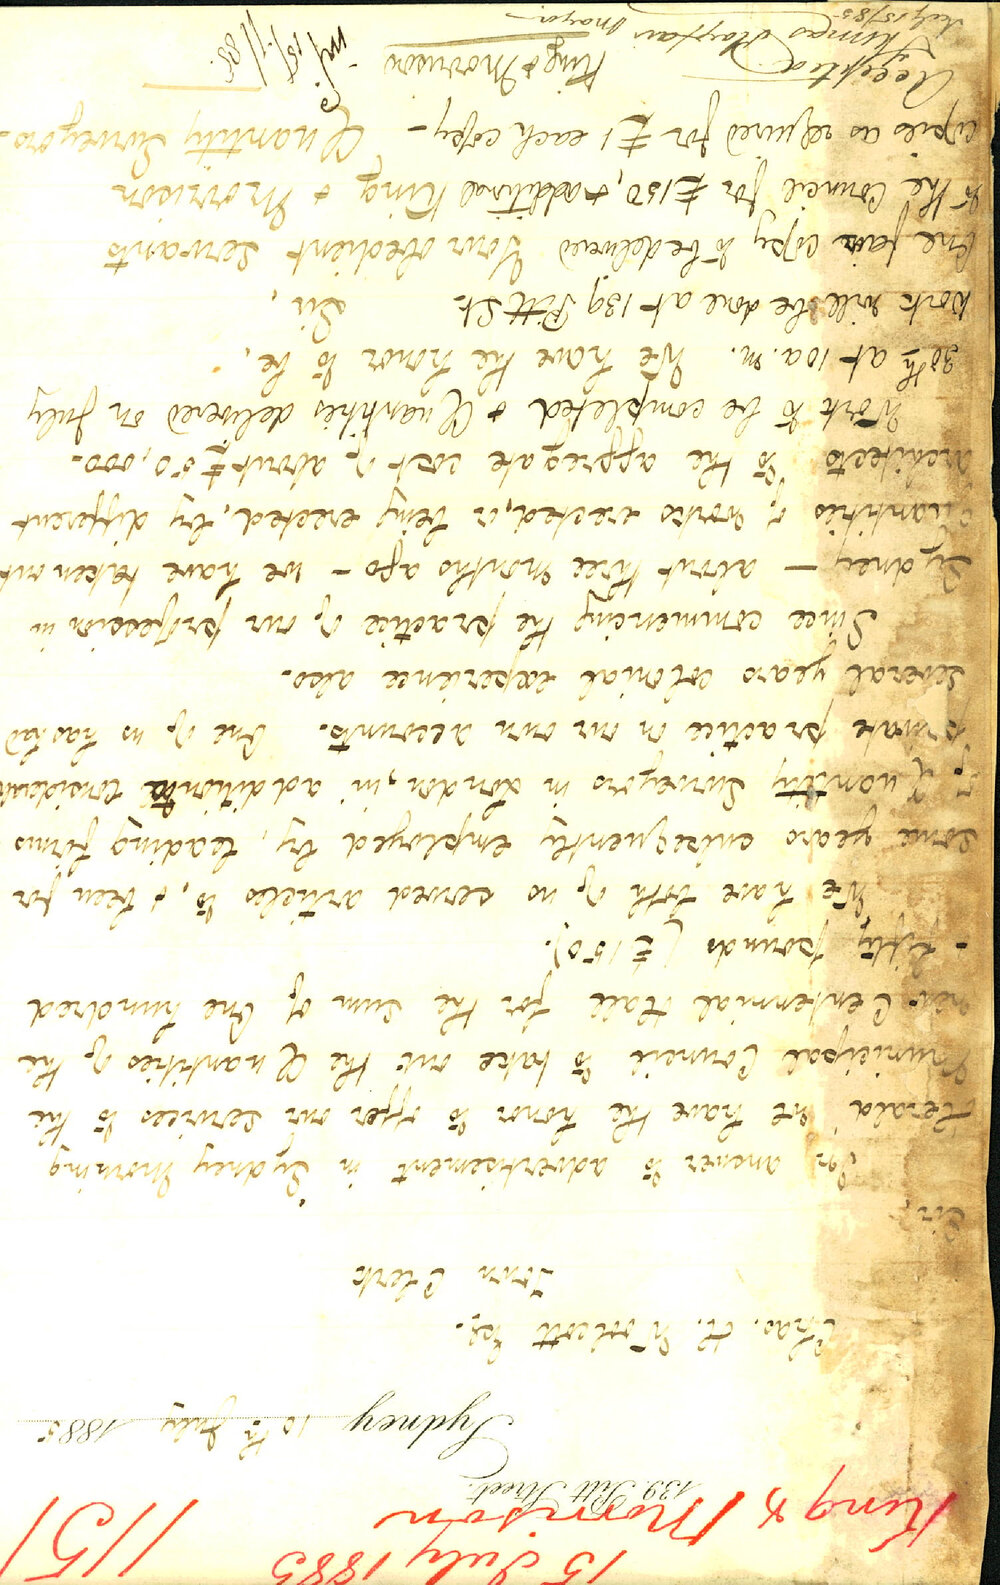 15 July 1885
1151
King & Morrison
139. Pitt Street.
Sydney 10th July 1885
Chas. H. Woolcott Esq.
Town Clerk
Sir,
In answer to advertisement in "Sydney Morning
Herald" we have the honor to offer our services to the
Municipal Council to take out the Quantities of the
new Centennial Hall for the sum of One hundred
& fifty pounds (£150).
We have both of us served articles to, & been for
some years subsequently employed by, leading firms
of Quantity Surveyors in London, in addition to considerable
private practice on our own accounts. One of us has had
several years colonial experience also.
Since commencing the practice of our profession in
Sydney — about three months ago — we have taken out
Quantities of works erected, or being erected, by different
Architects to the aggregate cost of about £50,000.
Work to be completed & Quantities delivered on July
30th at 10 a.m. We have the honor to be,
Work will be done at 139 Pitt St. Sir,
One fair copy to be delivered Your obedient Servants
to the Council for £150, & additional King & Morrison
copies as required for £1 each copy — Quantity Surveyors.
Accepted King & Morrison
Thomas Playfair Mayor
July 15/85
inf 15/7/85.